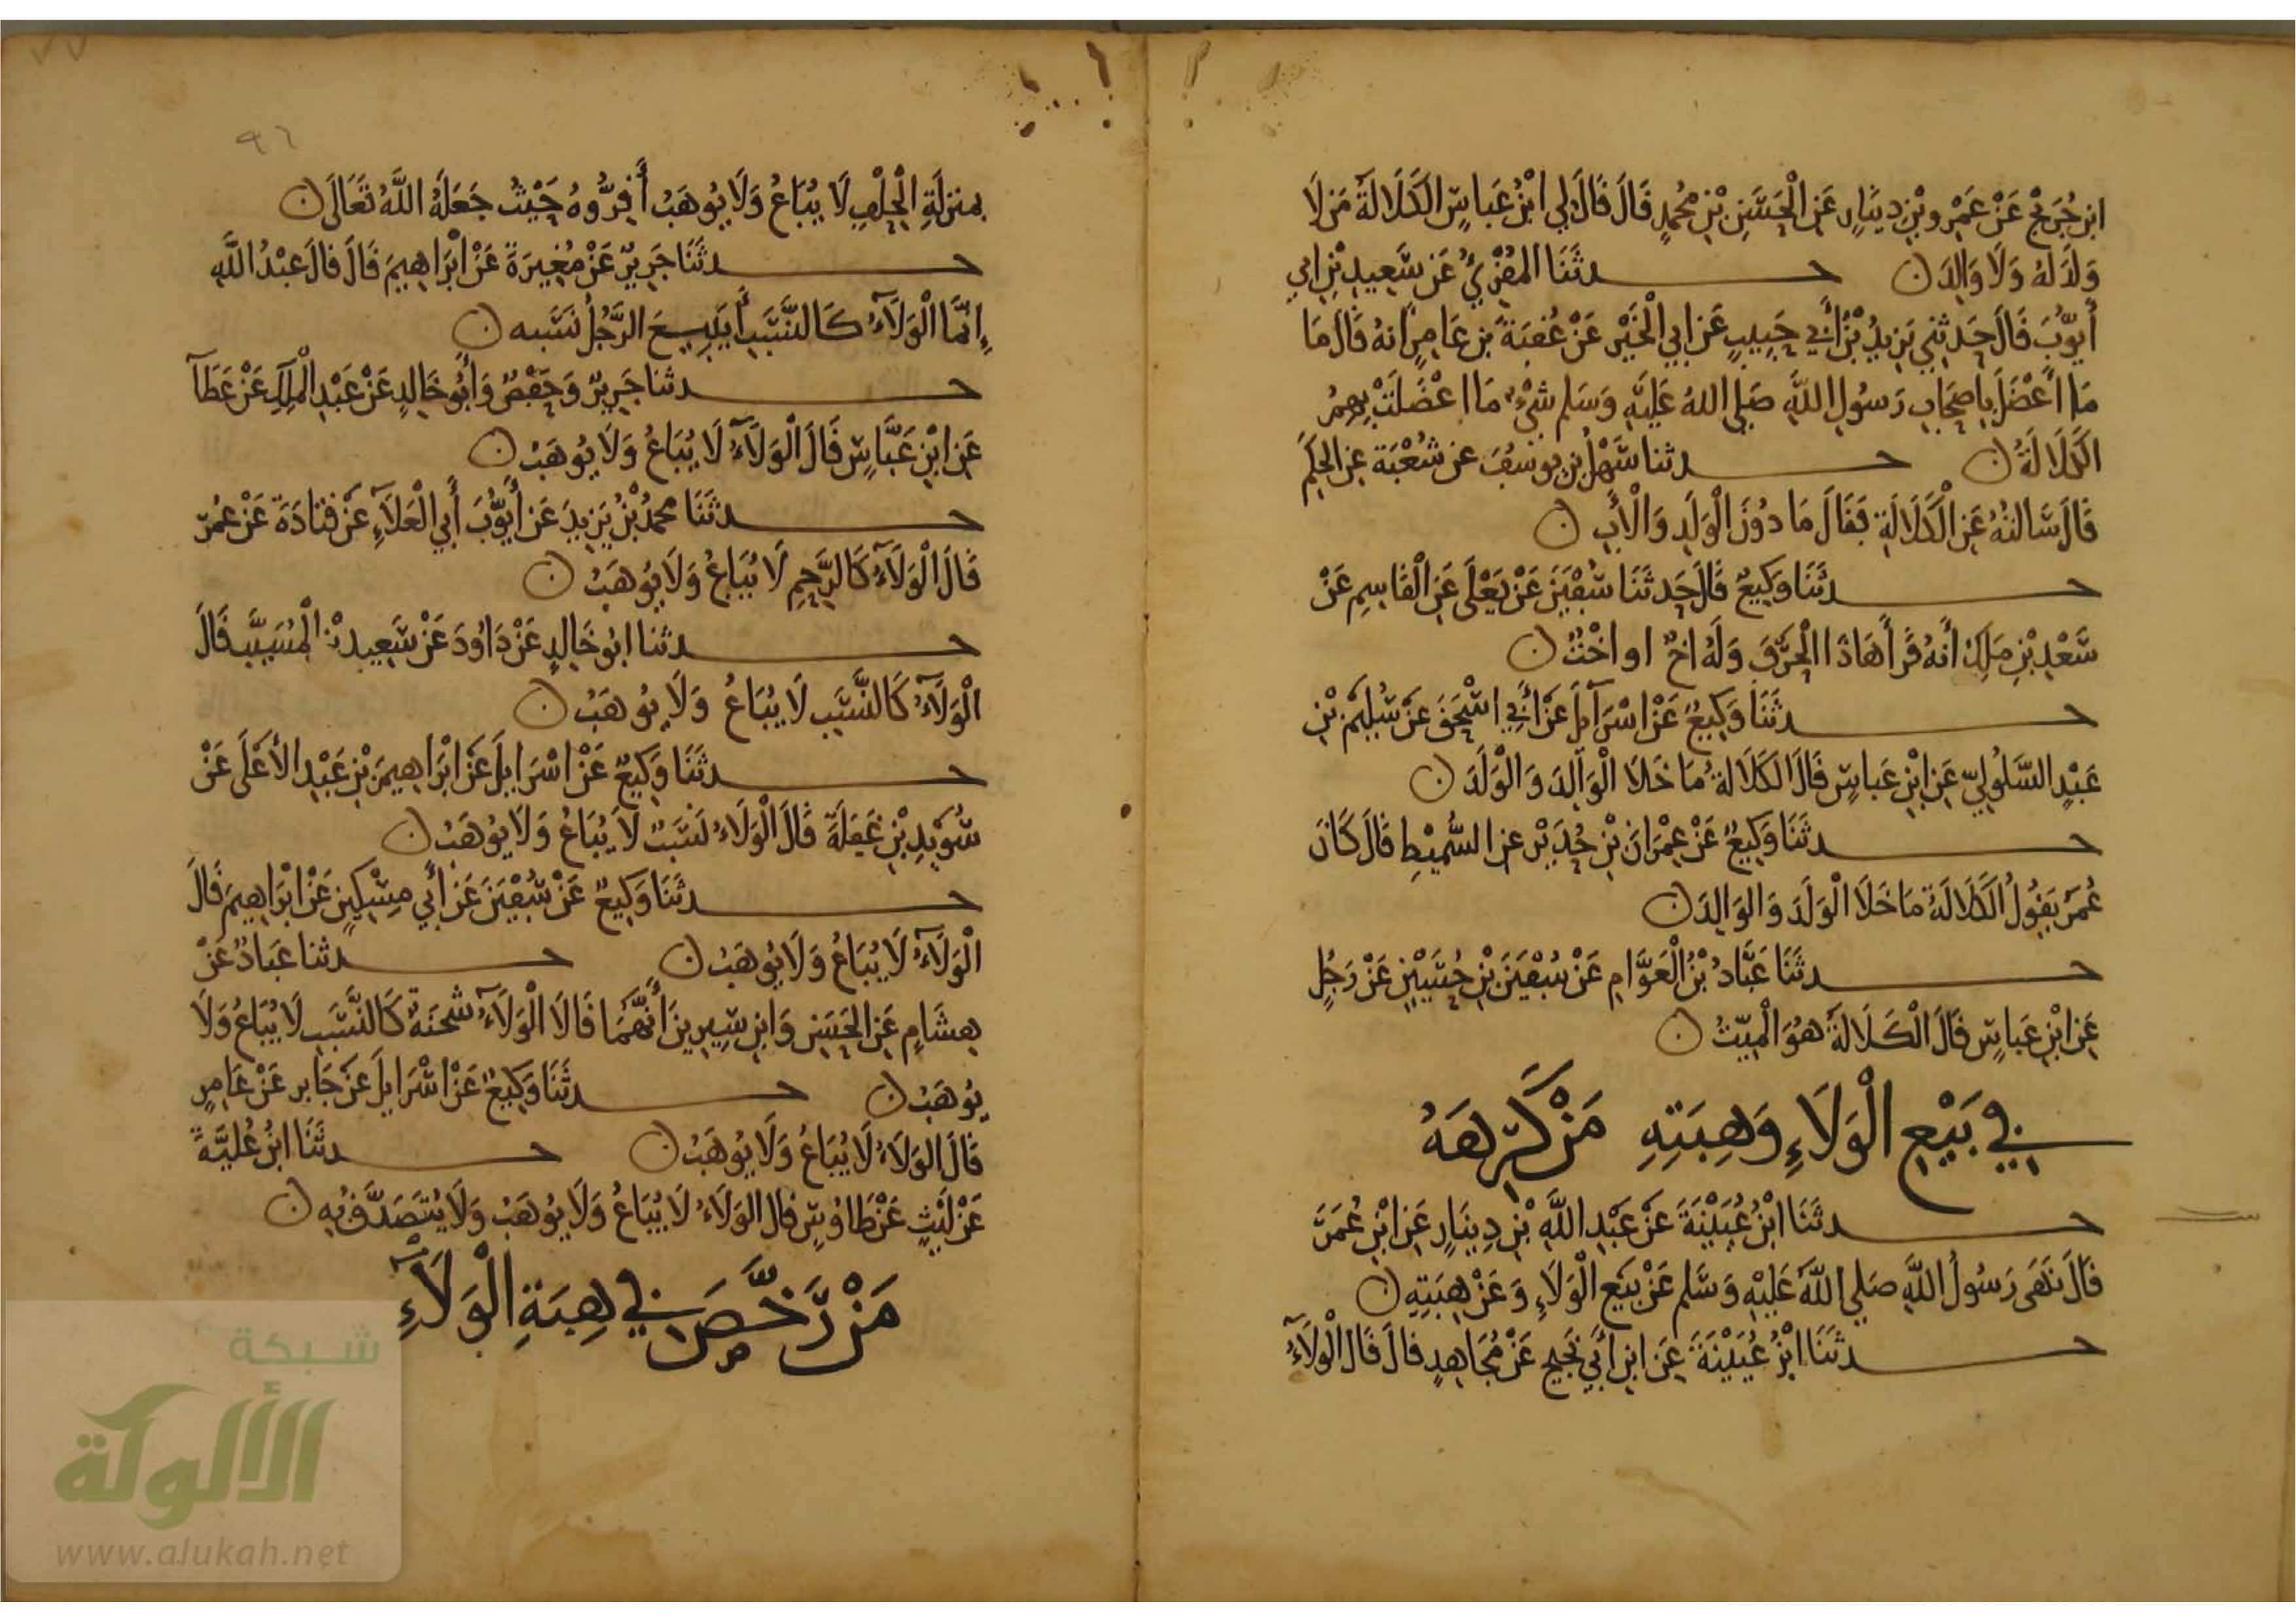 ابن جُرَيْج عَنْ عَمْرِو بْنِ دِينَارٍ عَنِ الْحَسَنِ بْنِ مُحُمدٍ قَالَ قَالَ لِي ابْنُ عَبَاسٍ الكَلَالَةُ مَن لَا
وَلَدَ لَهُ وَلَا وَالِدَ ن حــدثَنَا المُقْرِيُ عَن سَعِيدِ بْنِ ابي
أَيُّوبَ قَالَ حَدثنِي يَزِيدُ بْنُ أَبِي حَبِيبٍ عَن ابِي الْخَيْر عَنْ عُقبَةَ بن عَامِرٍ انهُ قَالَ مَا
مَا أَعْضَلَ بِاصحَابِ رَسُولِ اللَّهِ صَلى اللهُ عَلَيْهِ وَسَلم شَيْءٌ مَا اعْضَلَتْ بِهِمُ
الكَلَالَةُ ن حــدثنا سَهْلُ بن يوسُفَ عن شُعْبَة عن الحكَمِ
قَالَ سَالتُهُ عَنِ الْكَلَالَةِ فَقَالَ مَا دُونَ الْوَلَدِ وَالْأَبِ ن
حــدثَنَا وَكِيعٌ قَالَ حَدثَنَا سُفْيَنَ عَنْ يَعْلَى عَنِ الْقَاسِمِ عَنْ
سَعْدِ بْنِ مَلِكٍ أَنهُ قَرأَ هَاذَا الْحَرْفَ وَلَهُ اخٌ او اخْتٌ ن
حــدثَنَا وَكِيعٌ عَنْ اسْرَآئلَ عَنْ أَبِي اسْحَقَ عَنْ سُلَيْمَ بْنِ
عَبْدٍ السَّلُولِيّ عَنِ ابْنِ عَبَاسٍ قَالَ الكَلَالَةُ مَا خَلَا الْوَالِدَ وَالْوَلَدَ ن
حــدثَنَا وَكِيعٌ عَنْ عِمْرَانَ بْنِ حُدَيْر عن السُّمَيْطِ قَالَ كَانَ
عُمَرُ يَقُولُ الكَلَالَةُ مَا خَلَا الْوَلَدَ وَالوَالِدَ ن
حــدثَنَا عَبَّادُ بْنُ الْعَوَّامِ عَنْ سُفْيَنَ بْنِ حُسَيْنٍ عَنْ رَجُلٍ
عَنِ ابْنِ عَبَاسٍ قَالَ الْكَلَالَةُ هُوَ الْمَيّتُ ن
فِي بَيْعِ الْوَلَاءِ وَهِبَتِهِ مَنْ كَرِهَهُ
حــدثَنَا ابْنُ عُيَيْنَةَ عَنْ عَبْدِ اللَّهِ بْنِ دِينَارٍ عَنِ ابْنِ عُمَرَ
قَالَ نَهَى رَسُولُ اللَّهِ صَلى اللَّهُ عَلَيْهِ وَسَلم عَنْ بَيْعِ الْوَلَاءِ وَعَنْ هِبَتِهِ ن
حــدثَنَا ابْنُ عُيَيْنَةَ عَنِ ابنِ أَبِي نَجِيح عَنْ مُجَاهِدٍ قَالَ قَالَ الْوَلَآءُ
٩٦
بمنزِلَةِ الْحِلْفِ لَا يُبَاعُ وَلَا يُوهَبُ أَقِرُّوهُ حَيْثُ جَعَلَهُ اللَّهُ تَعَالَى ن
حــدثَنَا جَرِيرٌ عَنْ مُغِيرَةَ عَنْ ابْرَاهِيمَ قَالَ قَالَ عَبْدُ اللَّهِ
إِنَّمَا الْوَلَآءُ كَالنَّسَبِ أَيَبِيعَ الرَّجُلُ نَسَبه ن
حــدثنا جَرِيرٌ وَحَفْصٌ وَأَبُو خَالِدٍ عَنْ عَبْدِ الْمَلِكِ عَنْ عَطَآ
عَنِ ابْنِ عَبَّاسٍ قَالَ الْوَلَآءُ لَا يُبَاعُ وَلَا يُوهَبُ ن
حــدثَنَا محمدُ بْنُ يَزِيدَ عَن أَيُّوبَ أَبِي الْعَلَآءِ عَنْ قتَادَةَ عَنْ عُمَرَ
قَالَ الْوَلَآءُ كَالرَّحِمِ لَا يُبَاعُ وَلَا يُوهَبُ ن
حــدثنا ابُو خَالِدٍ عَنْ دَاوُدَ عَنْ سَعِيدِ بْنِ الْمُسَيَّبِ قَالَ
الْوَلَآءُ كَالنَّسَبِ لَا يُبَاعُ وَلَا يُوهَبُ ن
حــدثَنَا وَكِيعٌ عَنْ اسْرَايلَ عَنْ ابْرَاهِيمَ بْنِ عَبْدِ الأعْلَى عَنْ
سُوَيْدِ بْنِ غَفَلَةَ قَالَ الْوَلَاءُ نَسَبٌ لَا يُبَاعُ وَلَا يُوهَبُ ن
حــدثَنَا وَكِيعٌ عَنْ سُفْيَنَ عَنْ أَبِي مِسْكِينٍ عَنْ ابْرَاهِيمَ قَالَ
الْوَلَآءُ لَا يُبَاعُ وَلَا يُوهَبُ ن حــدثنا عَبَادٌ عَنْ
هِشَامٍ عَنِ الحَسَنِ وَابنِ سِيرِينَ أَنَّهُمَا قَالَا الْوَلَآءُ شُحنَةٌ كَالنَّسَبِ لَا يُبَاعُ وَلَا
يُوهَبُ ن حــدثَنَا وَكِيعٌ عَنْ اسْرَايلَ عَنْ جَابر عَنْ عَامِرٍ
قَالَ الوَلَاءُ لَا يُبَاعُ وَلَا يُوهَبُ ن حــدثَنَا ابْنُ عُلَيَّةَ
عَنْ لَيْثٍ عَنْ طَاوُسٍ قَالَ الوَلَاءُ لَا يُبَاعُ وَلَا يُوهَبُ وَلَا يُتَصَدَّقُ بِهِ ن
مَنْ رَخَّصَ فِي هِبَةِ الْوَلَآءِ
شبكة
الألوكة
www.alukah.net